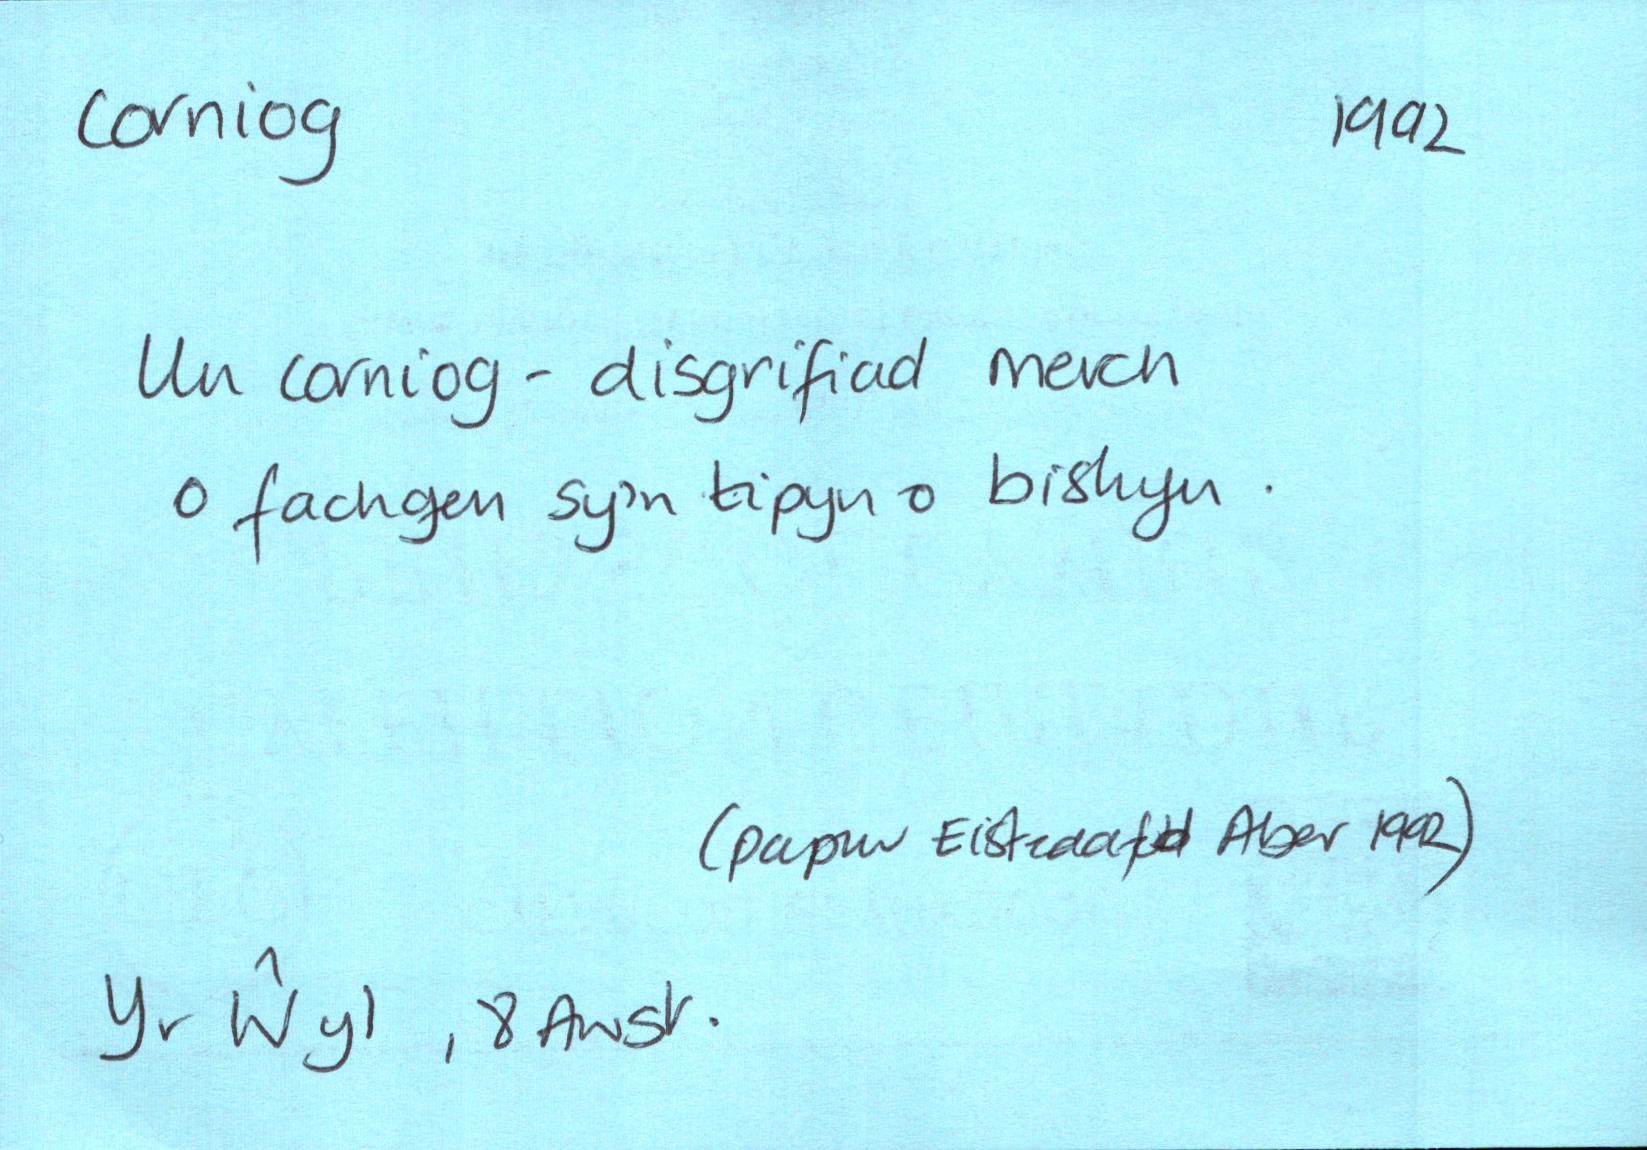 corniog 1992
Un corniog - disgrifiad merch
o fachgen sy'n tipyn o bishyn.
(papur Eisteddfod Aber 1992)
Yr Ŵyl, 8 Awst.